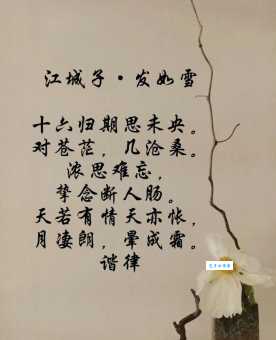 江城子·发如雪
十六归期思未央。
对苍茫，几沧桑。
浓思难忘，
挚念断人肠。
天若有情天亦怅，
月凄朗，晕成霜。
谐律